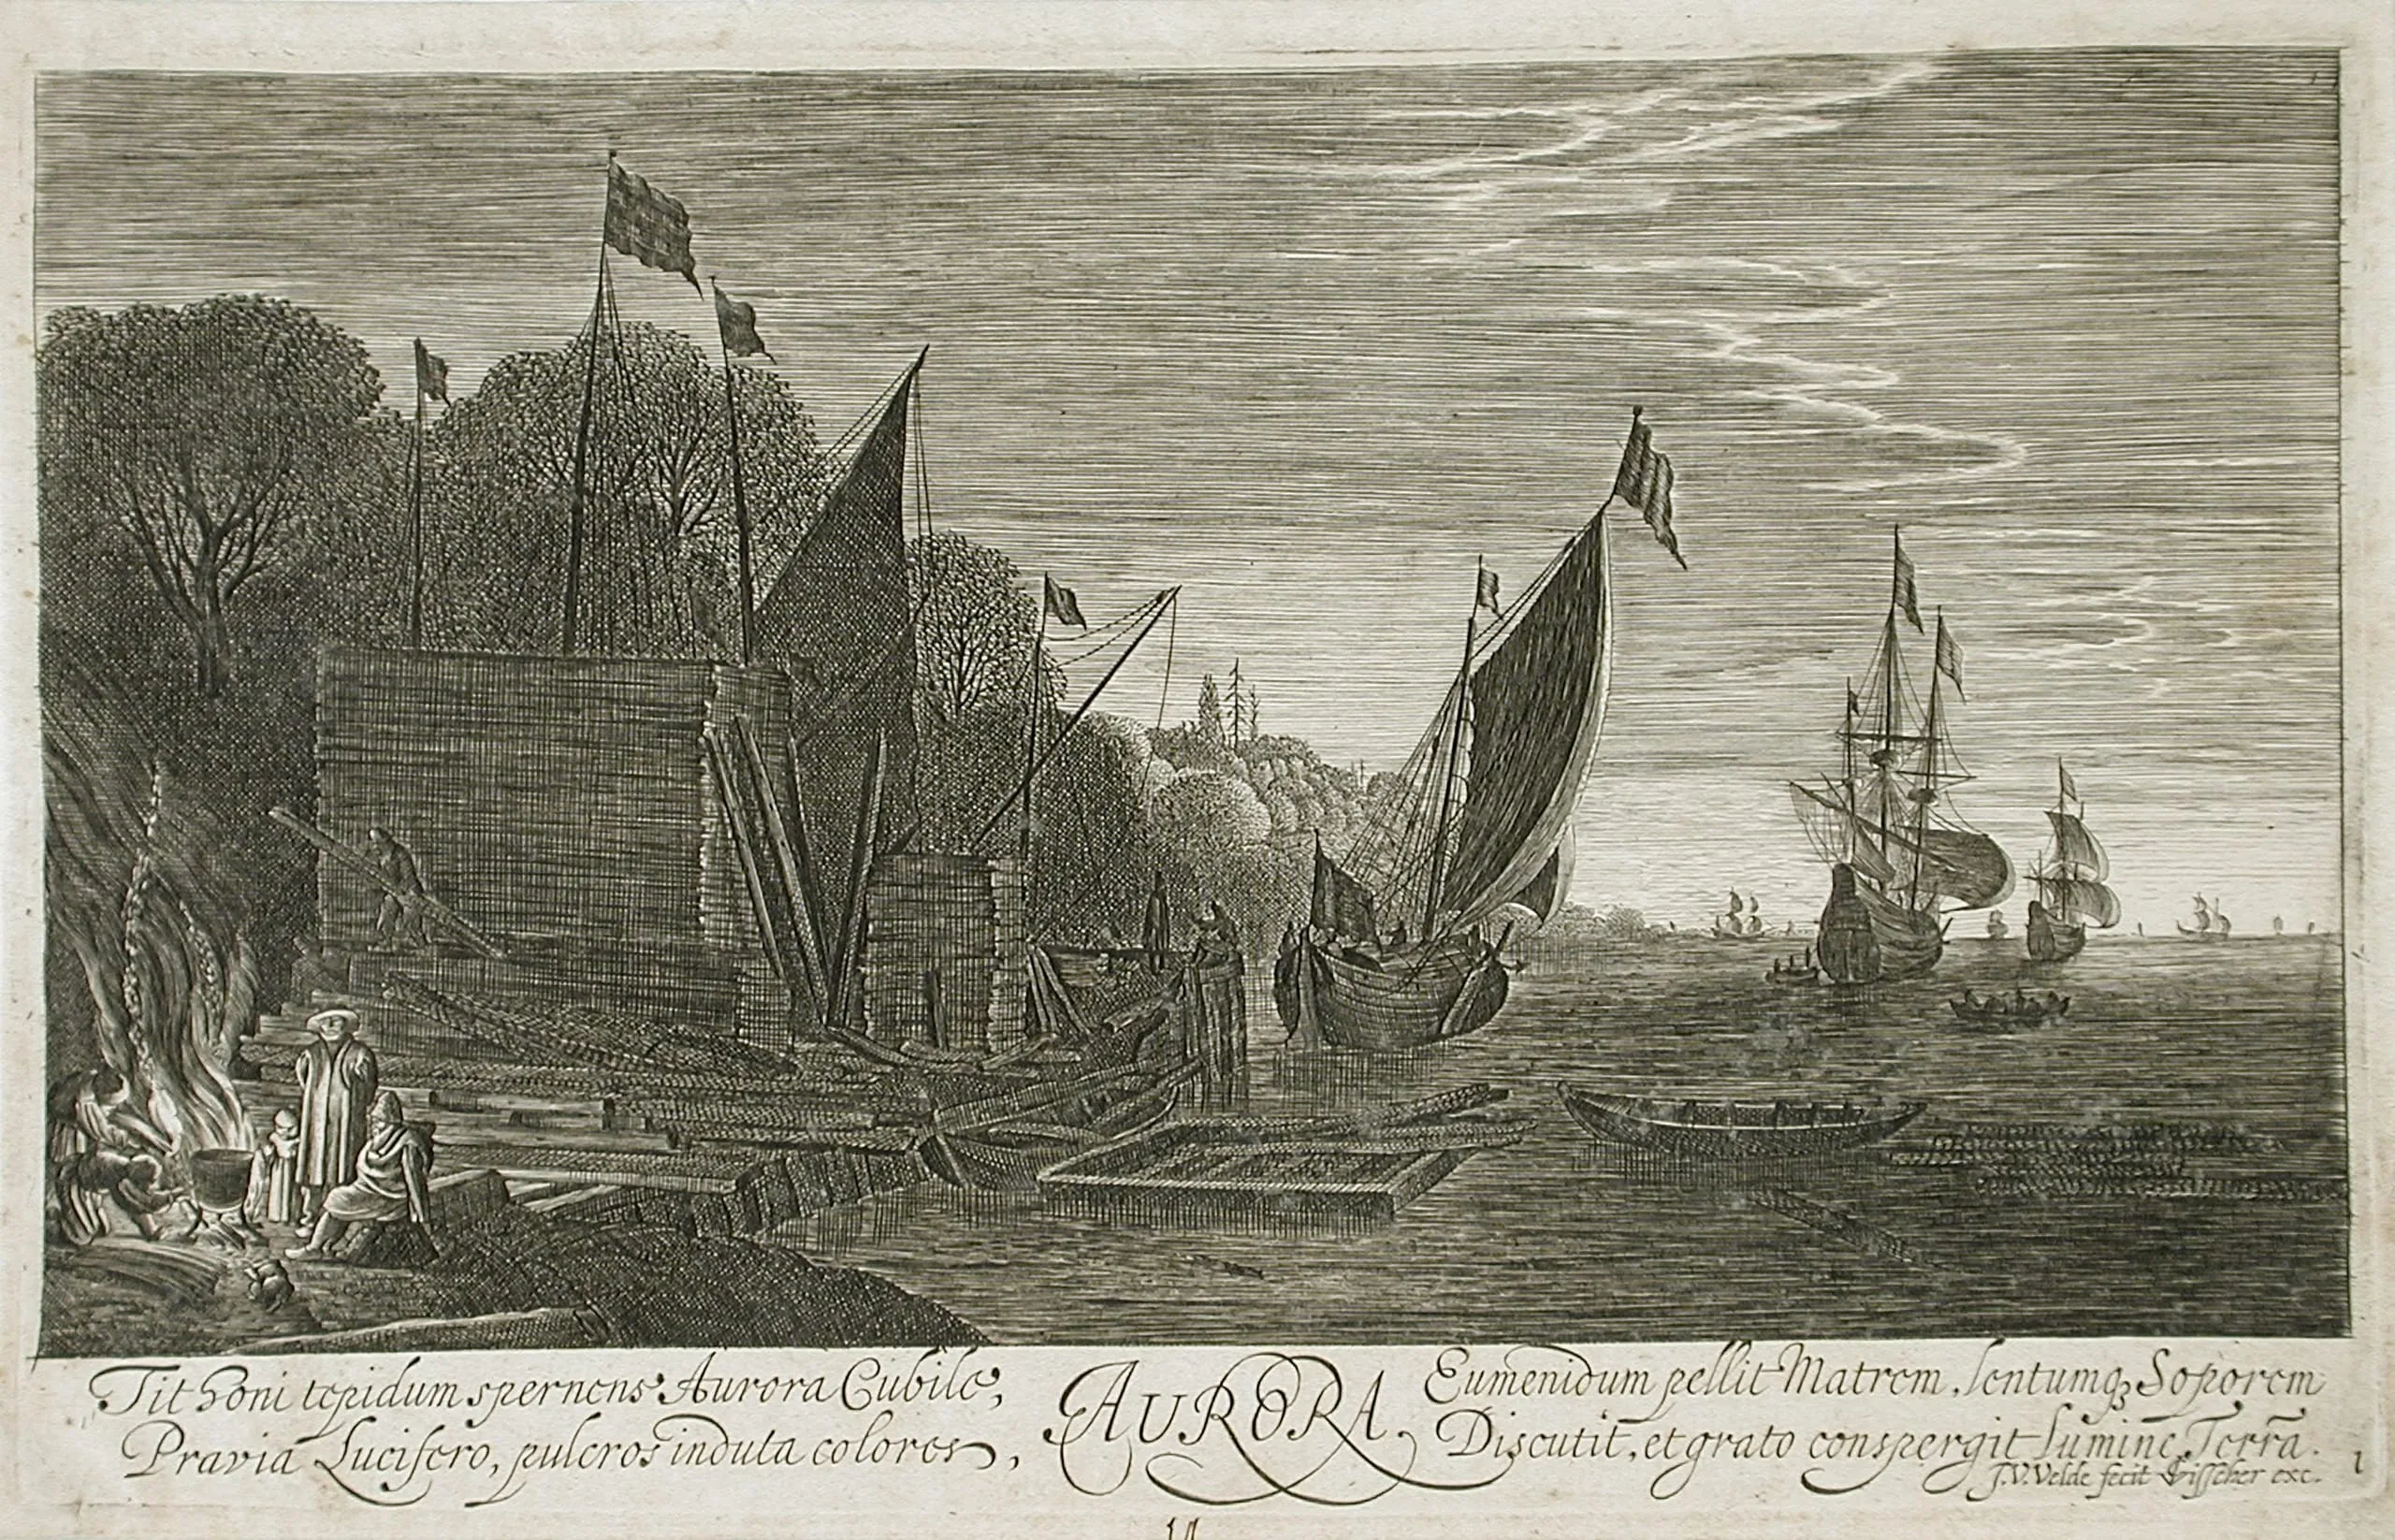 Tithoni tepidum spernens Aurora Cubile,
Pravia Lucifero, pulcros induta colores,
AURORA.
Eumenidum pellit Matrem, lentumq3 Soporem
Discutit, et grato conspergit lumine Terrā.
J.V.Velde fecit Visscher exc.
1